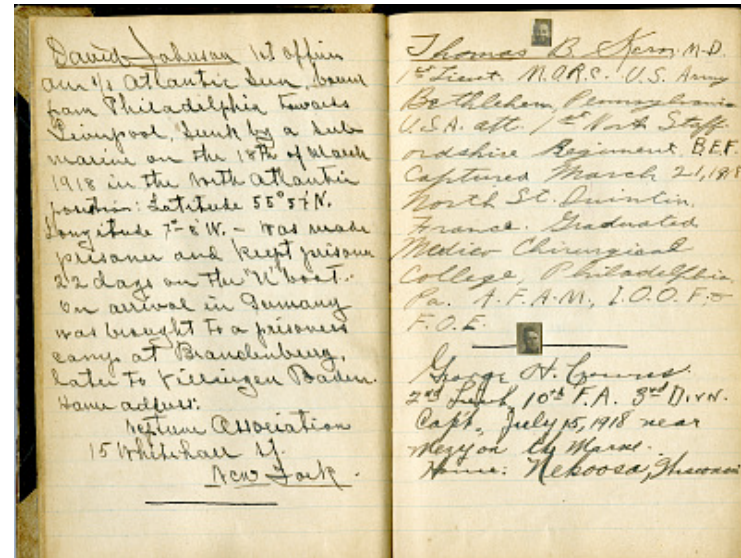 David Johnson 1st Officer
am s/s Atlantic Sun, bound
from Philadelphia towards
Liverpool, Sunk by a Sub
marine on the 18th of March
1918 in the North Atlantic
position: Latitude 55° 57 N.
Longitude 7-8 W. - Was made
prisoner and kept prisoner
22 days on the "U" boat.
On arrival in Germany
was brought to a prisoners
camp at Brandenburg,
later to Villingen Baden.
Home address:
Neptune Association
15 Whitehall St.
New York.
Thomas B. M.D.
1st Lieut. M.O.R.C. U.S. Army
Bethlehem, Pennsylvania
U.S.A. att. 1st North Staff-
ordshire Regiment, B.E.F.
Captured March 21, 1918
North St. Quintin,
France. Graduated
Medico Chirurgical
College, Philadelphia,
Pa. A.F.A.M., I.O.O.F. &
F.O.E.
George H.
2nd Lieut. 10th F.A. 3rd Divn.
Capt. July 15, 1918 near
Mezy on the Marne.
Home: Nekoosa, Wisconsin